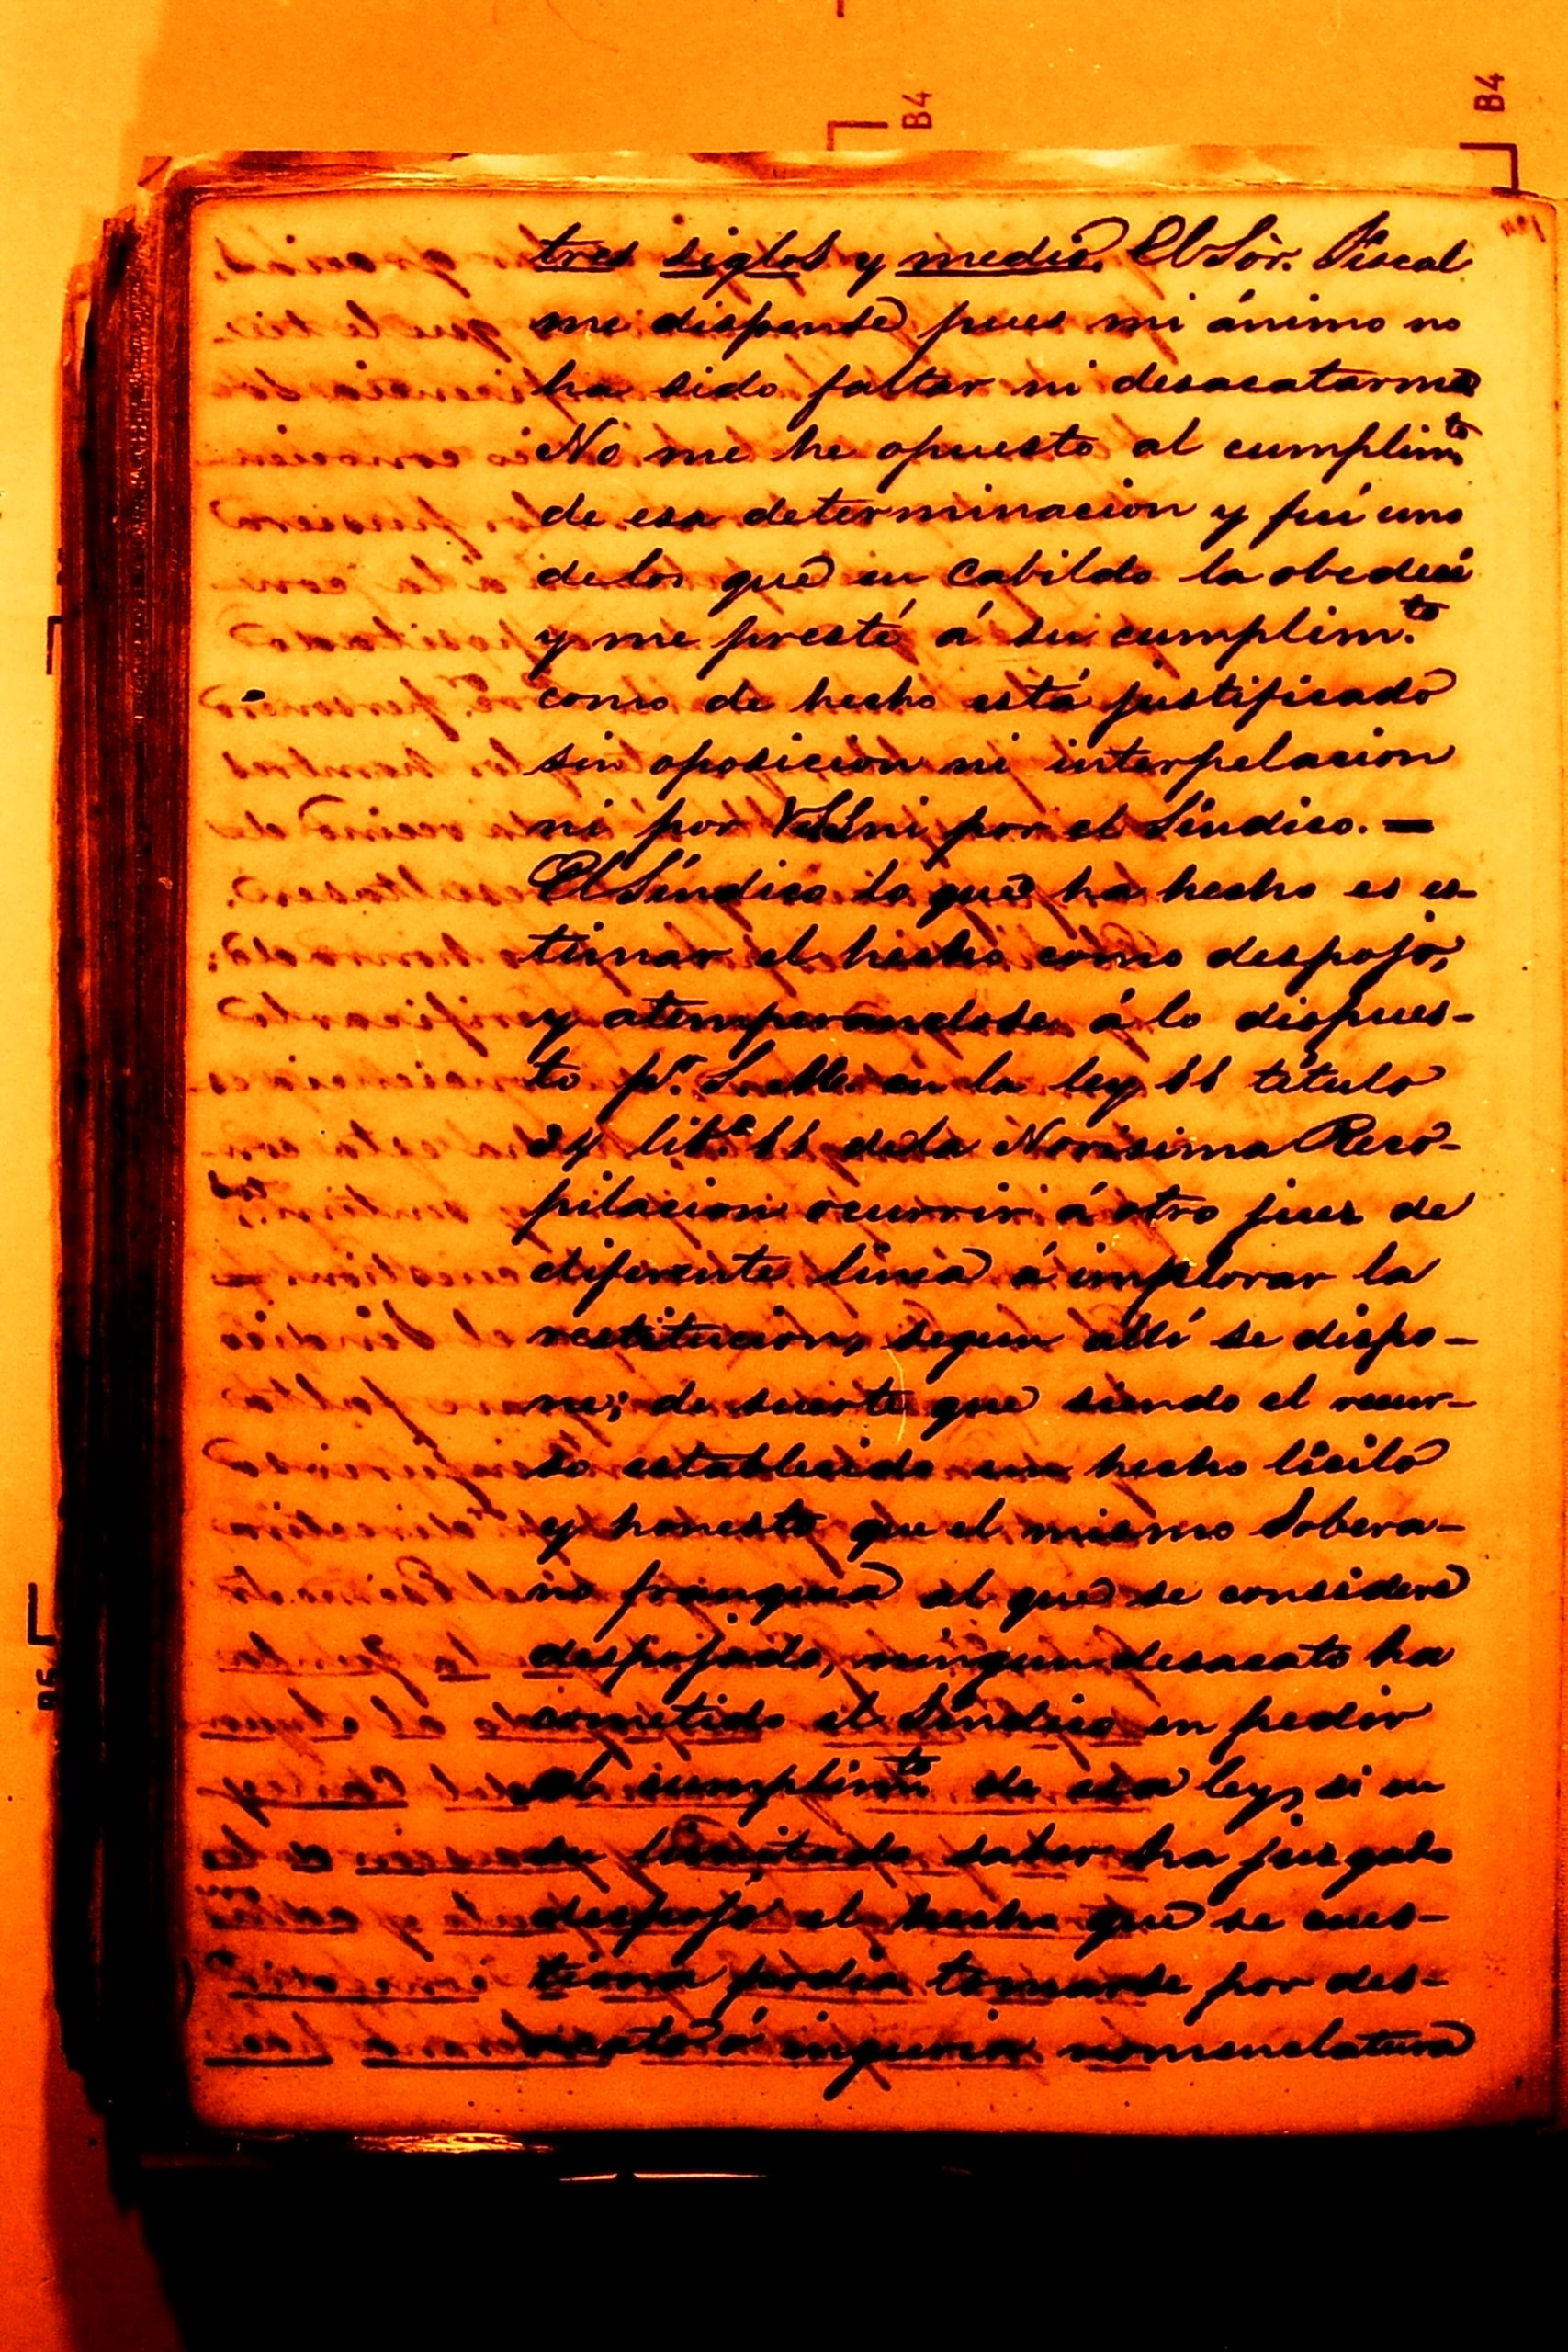 B4
B4
tres siglos y medio. El Sôr. Fiscal
me dispense pues mi ánimo no
ha sido faltar ni desacatarme
No me he opuesto al cumplimto
de esa determinacion y fuí uno
de los que en Cabildo la obedecí
y me presté á su cumplim.to
como de hecho está justificado
sin oposicion ni interpelacion
ni por VSS ni por el Síndico. —
El Síndico lo que ha hecho es es-
timar el hecho como despojo,
y atemperandose á lo dispues-
to pr. S. M. en la ley 11 título
34 lib.o 11 de la Novisima Reco-
pilacion ocurrir á otro juez de
diferente linea á implorar la
restitucion, segun allí se dispo-
ne; de suerte que siendo el recur-
so establecido un hecho licito
y honesto que el mismo Sobera-
no franquea al que se considera
despojado, ningun desacato ha
cometido el Síndico en pedir
el cumplimto de esa ley, si en
su limitado saber ha juzgado
despojo el hecho que se cues-
tiona podia tomarse por des-
acato ó injuria nomenclatura